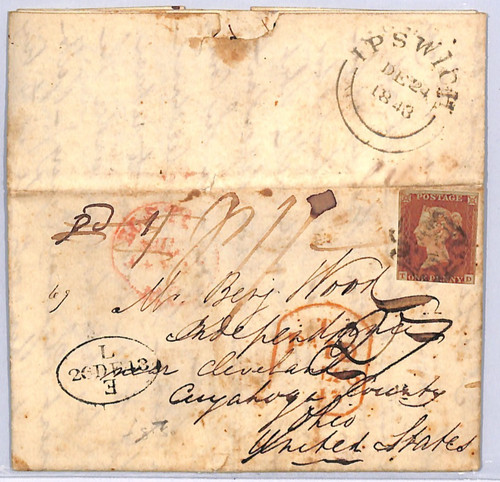 IPSWICH
DE 24
1843
POSTAGE
T D
ONE PENNY
pd 1/
Mr. Benj Wood
Independence
near Cleveland
Cuyahoga County
Ohio
United States
L
26 DE 43
E